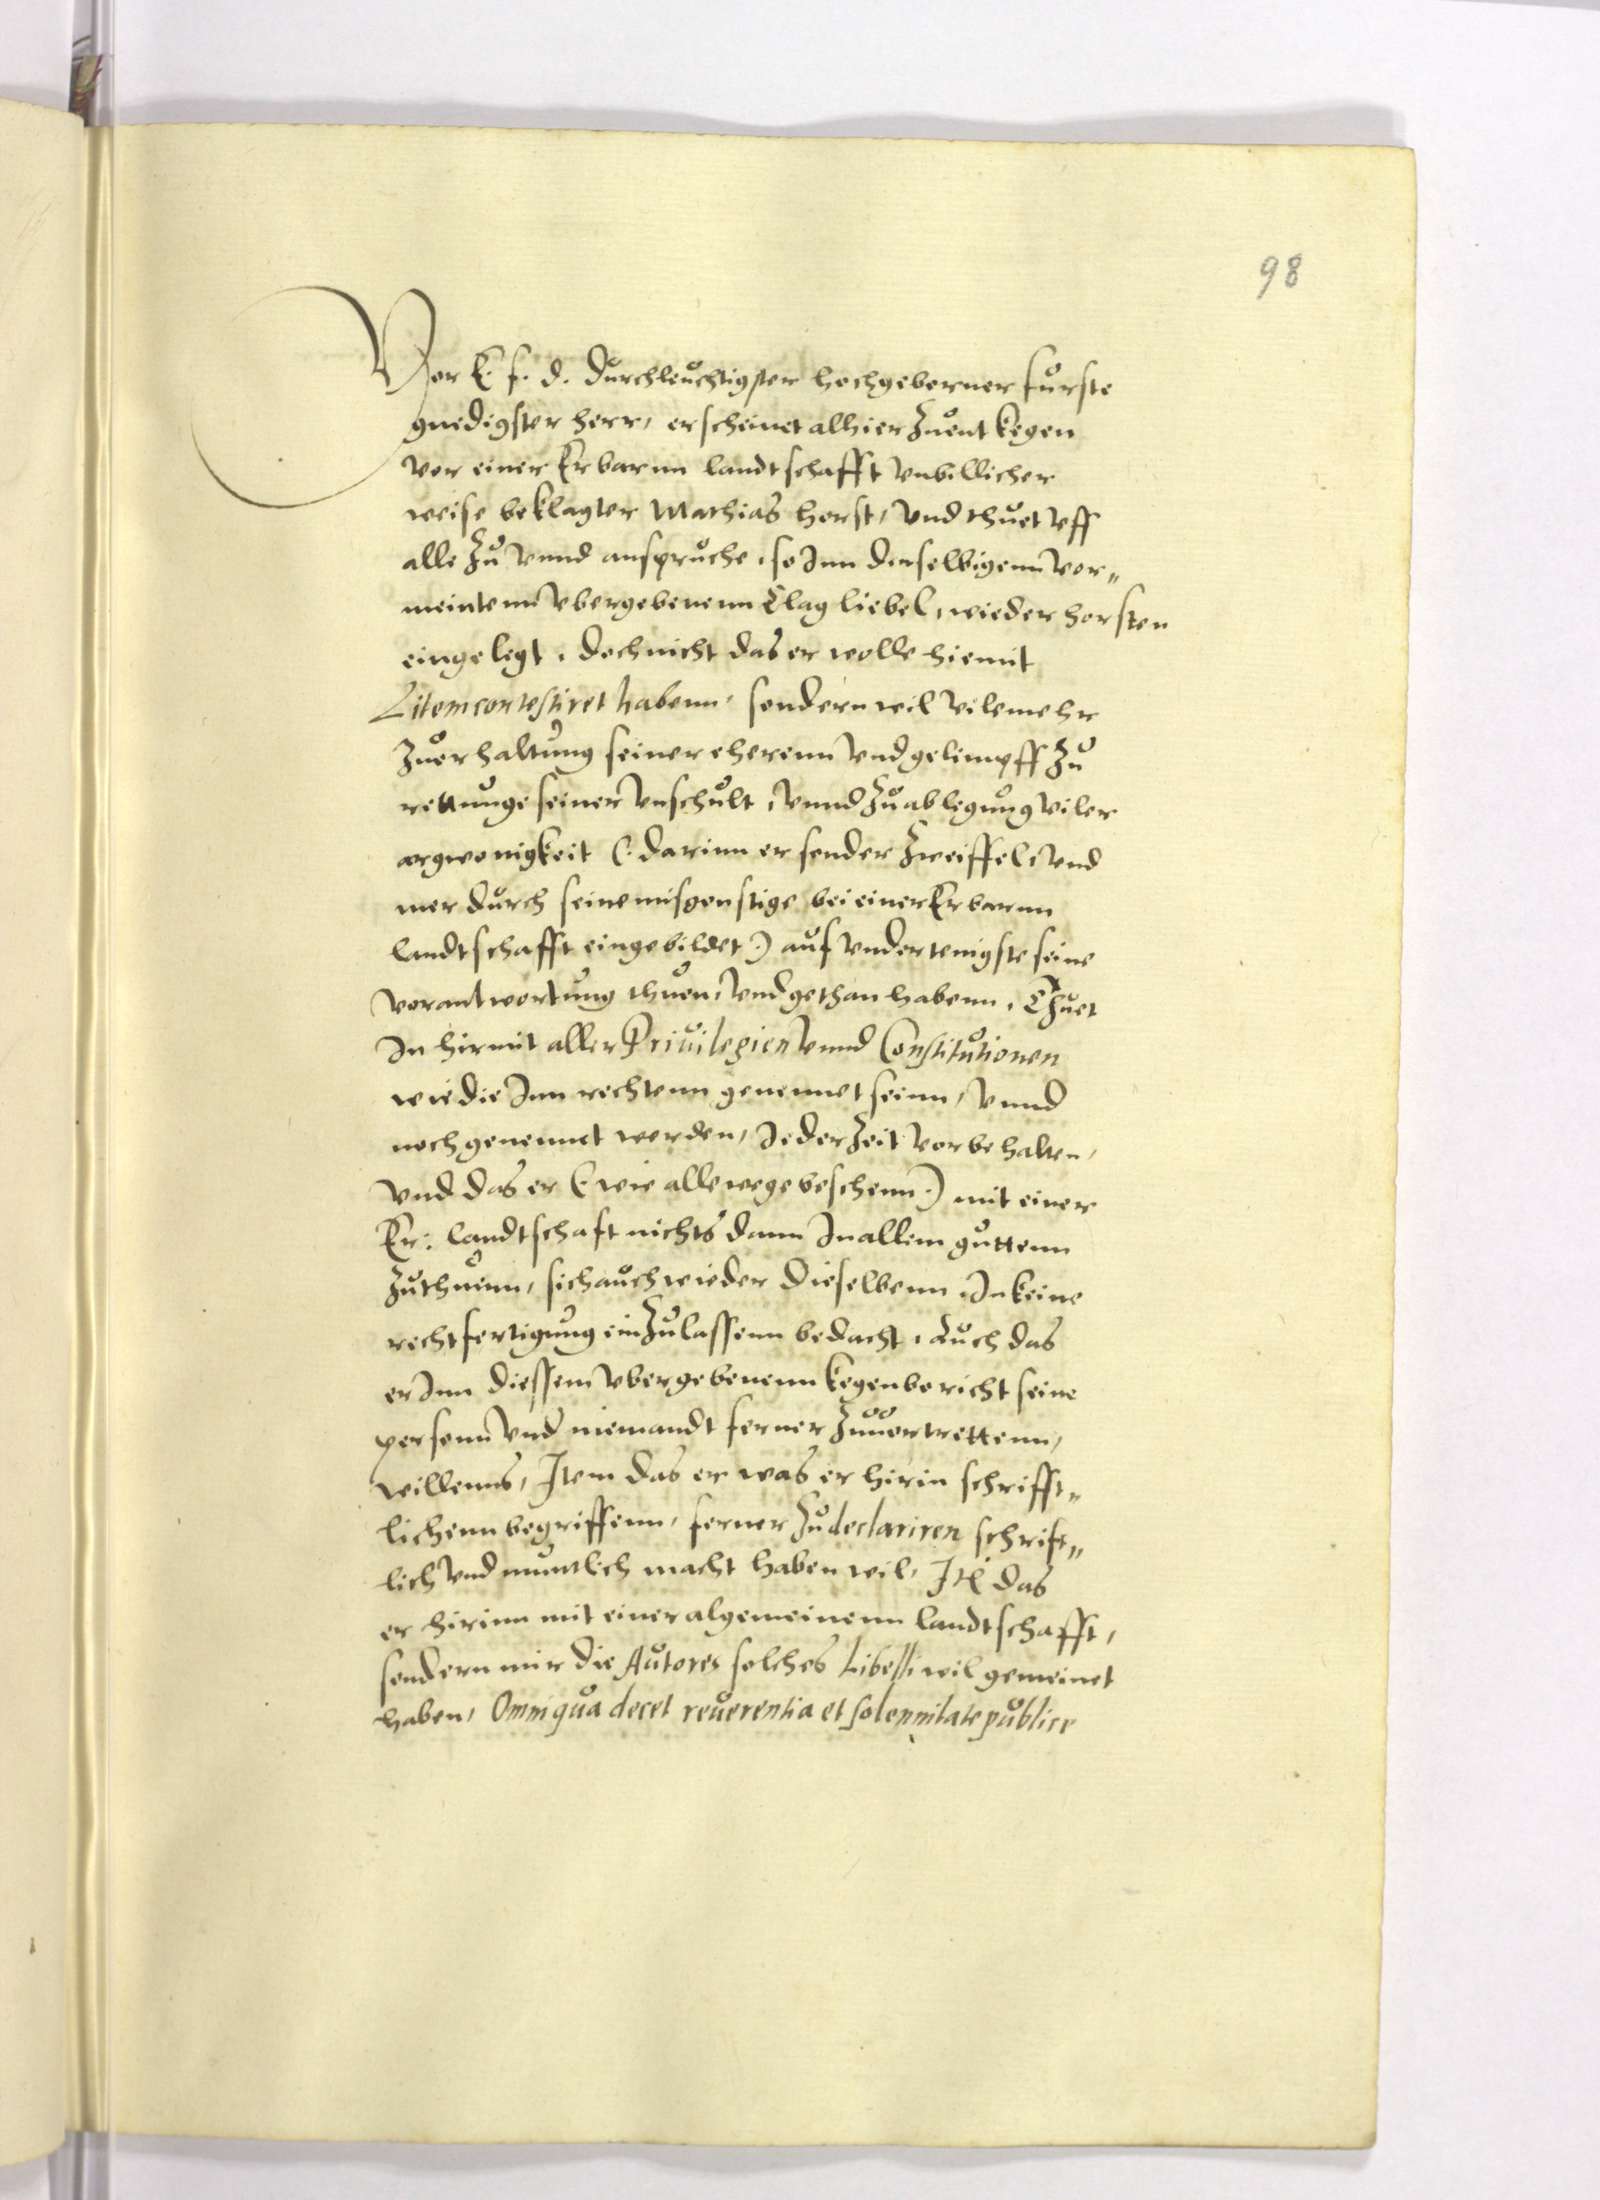 98
Vor E. f. d. Durchleuchtigster hochgeborner furste
gnedigster herr, erscheinet alhier Zuentkegen
vor einer Erbarnn landtschafft vnbillicher
weise beklagter Mathias Horst, vnd thuet vff
alle Zu vnnd anspruche, so Inn derselbigenn vor„
meintenn vbergebenenn Clag liebel, wieder horsten
eingelegt, doch nicht das er wolle hiemit
Litem contestiret habenn, sondern wil vilemehr
Zuerhaltung seiner eherenn vnd gelimpff Zu
rettunge seiner vnschult, vnnd Zu ablegung viler
argwonigkeit (: darinn er sonder Zweiffel, vnd
mer durch seine misgonstige bei einer Erbarnn
landtschafft eingebildet :) auf vndertenigste seine
vorantwortung thuen, vnd gethan habenn, Thuet
In hirmit aller Priuilegien vnnd Constitutionen
wie die Inn rechtenn genennet seinn, vnnd
noch genennet werden, Jeder Zeit vorbehalten,
vnd das er (: wie allewege beschenn :) mit einer
Er: landtschaft nichts dann In allem guttenn
Zuthuenn, sich auch wieder dieselbenn, In keine
rechtfertigung einZulassenn bedacht, Auch das
er Inn diessem vbergebenenn kegenbericht seine
personn vnd niemandt ferner Zuuortrettenn,
willenns, Item das er was er hirin schrifft„
lichenn begriffenn, ferner Zu declariren schrift„
lich vnd muntlich macht haben wil, Itē das
er hirinn mit einer algemeinenn landtschafft,
sondern nur die Autores solches Libelli wil gemeinet
haben, Omni qua decet reuerentia et solennitate publice